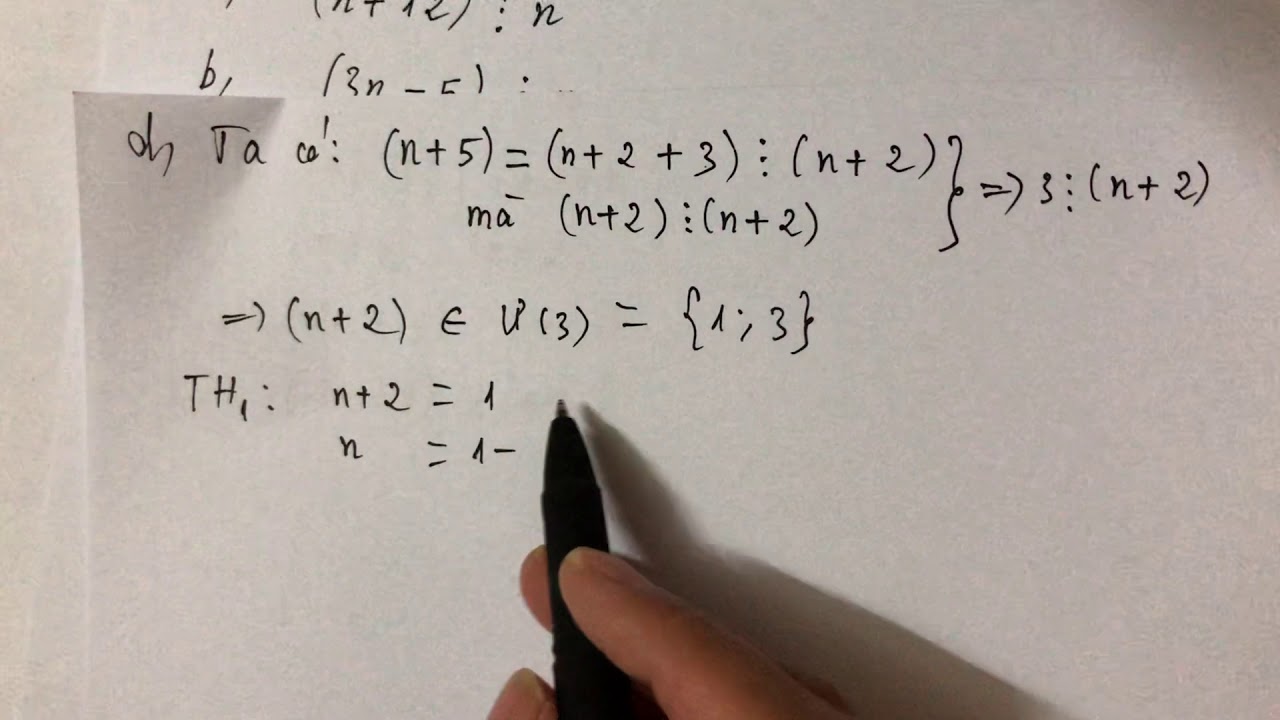 (n+12) ⋮ n
b, (3n - 5) ⋮
d, Ta có: (n+5) = (n+2+3) ⋮ (n+2) } => 3 ⋮ (n+2)
mà (n+2) ⋮ (n+2)
=> (n+2) ∈ Ư(3) = {1; 3}
TH1: n+2 = 1
n = 1-